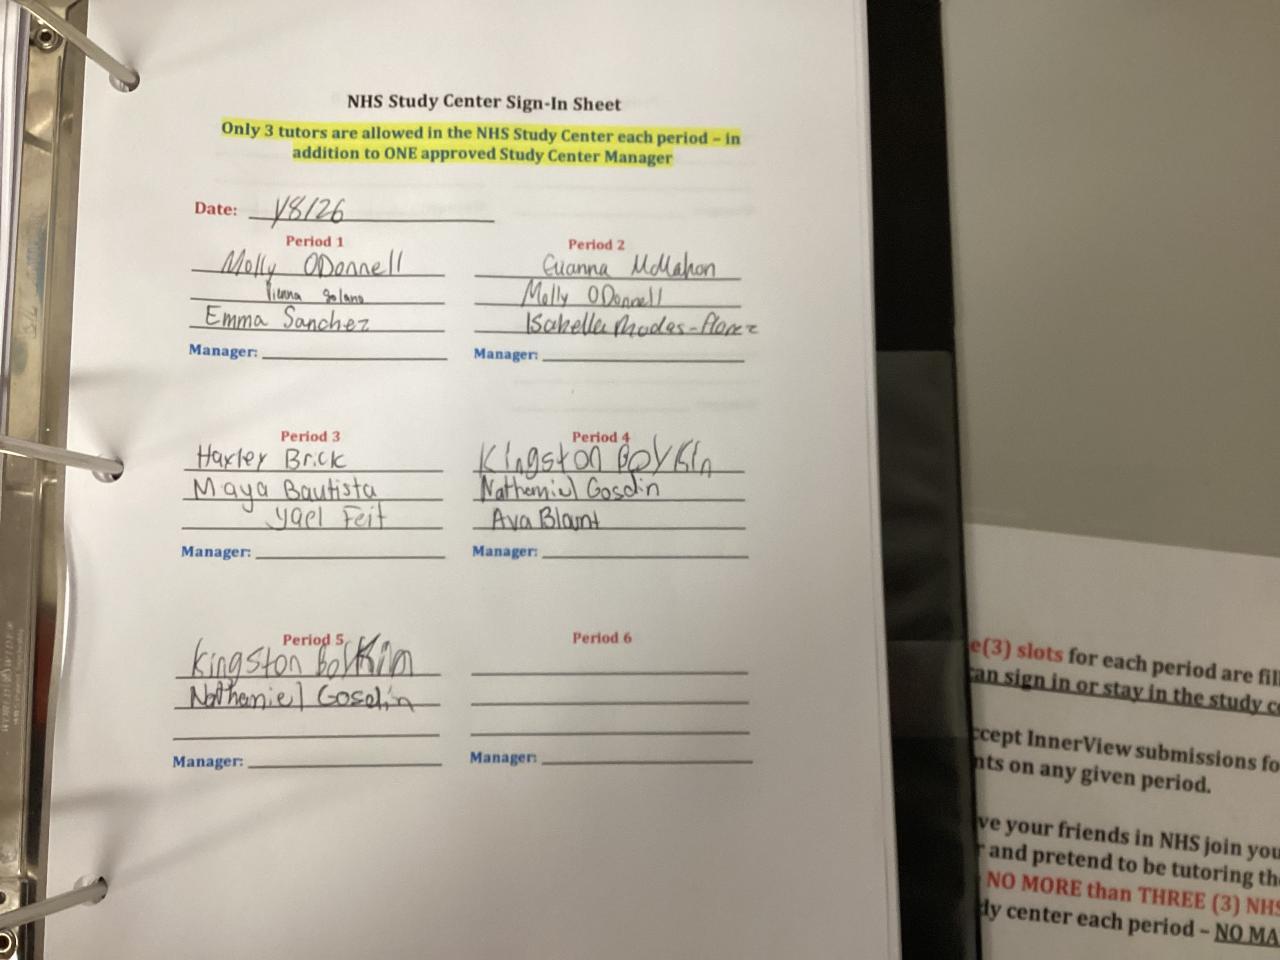 NHS Study Center Sign-In Sheet
Only 3 tutors are allowed in the NHS Study Center each period – in
addition to ONE approved Study Center Manager
Date: 1/8/26
Period 1
Molly ODonnell
Vienna Solano
Emma Sanchez
Manager:
Period 2
Euanna McMahon
Molly ODonnell
Isabella Rhodes-Florez
Manager:
Period 3
Haxley Brick
Maya Bautista
Yael Feit
Manager:
Period 4
Kingston Boykin
Nathaniel Gosdin
Ava Blant
Manager:
Period 5
Kingston Boykin
Nathaniel Gosdin
Manager:
Period 6
Manager:
e(3) slots for each period are fil
can sign in or stay in the study c
ccept InnerView submissions fo
nts on any given period.
ve your friends in NHS join you
and pretend to be tutoring th
NO MORE than THREE (3) NHS
dy center each period – NO MA